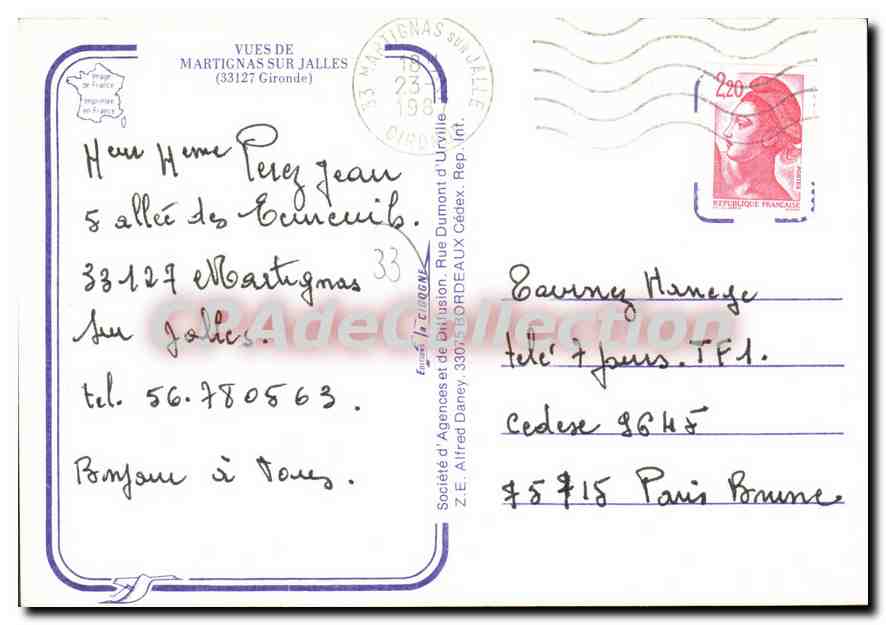 VUES DE
MARTIGNAS SUR JALLES
(33127 Gironde)
Image
de France
Imprimée
en France
Perez Jean
5 allée des Ecureuils.
33127 Martignas
sur Jalles.
tel. 56.780563.
Bonjour à Tous.
33
EDITIONS la CIGOGNE
Société d'Agences et de Diffusion. Rue Dumont d'Urville
Z.E. Alfred Daney. 33075 BORDEAUX Cédex. Rep. Int.
33 MARTIGNAS SUR JALLE
18
23
198
GIRONDE
2,20
POSTES
REPUBLIQUE FRANÇAISE
Tournez Manege
télé 7 jours. TF1.
Cedexe
75715 Paris Brune
CPAdeCollection